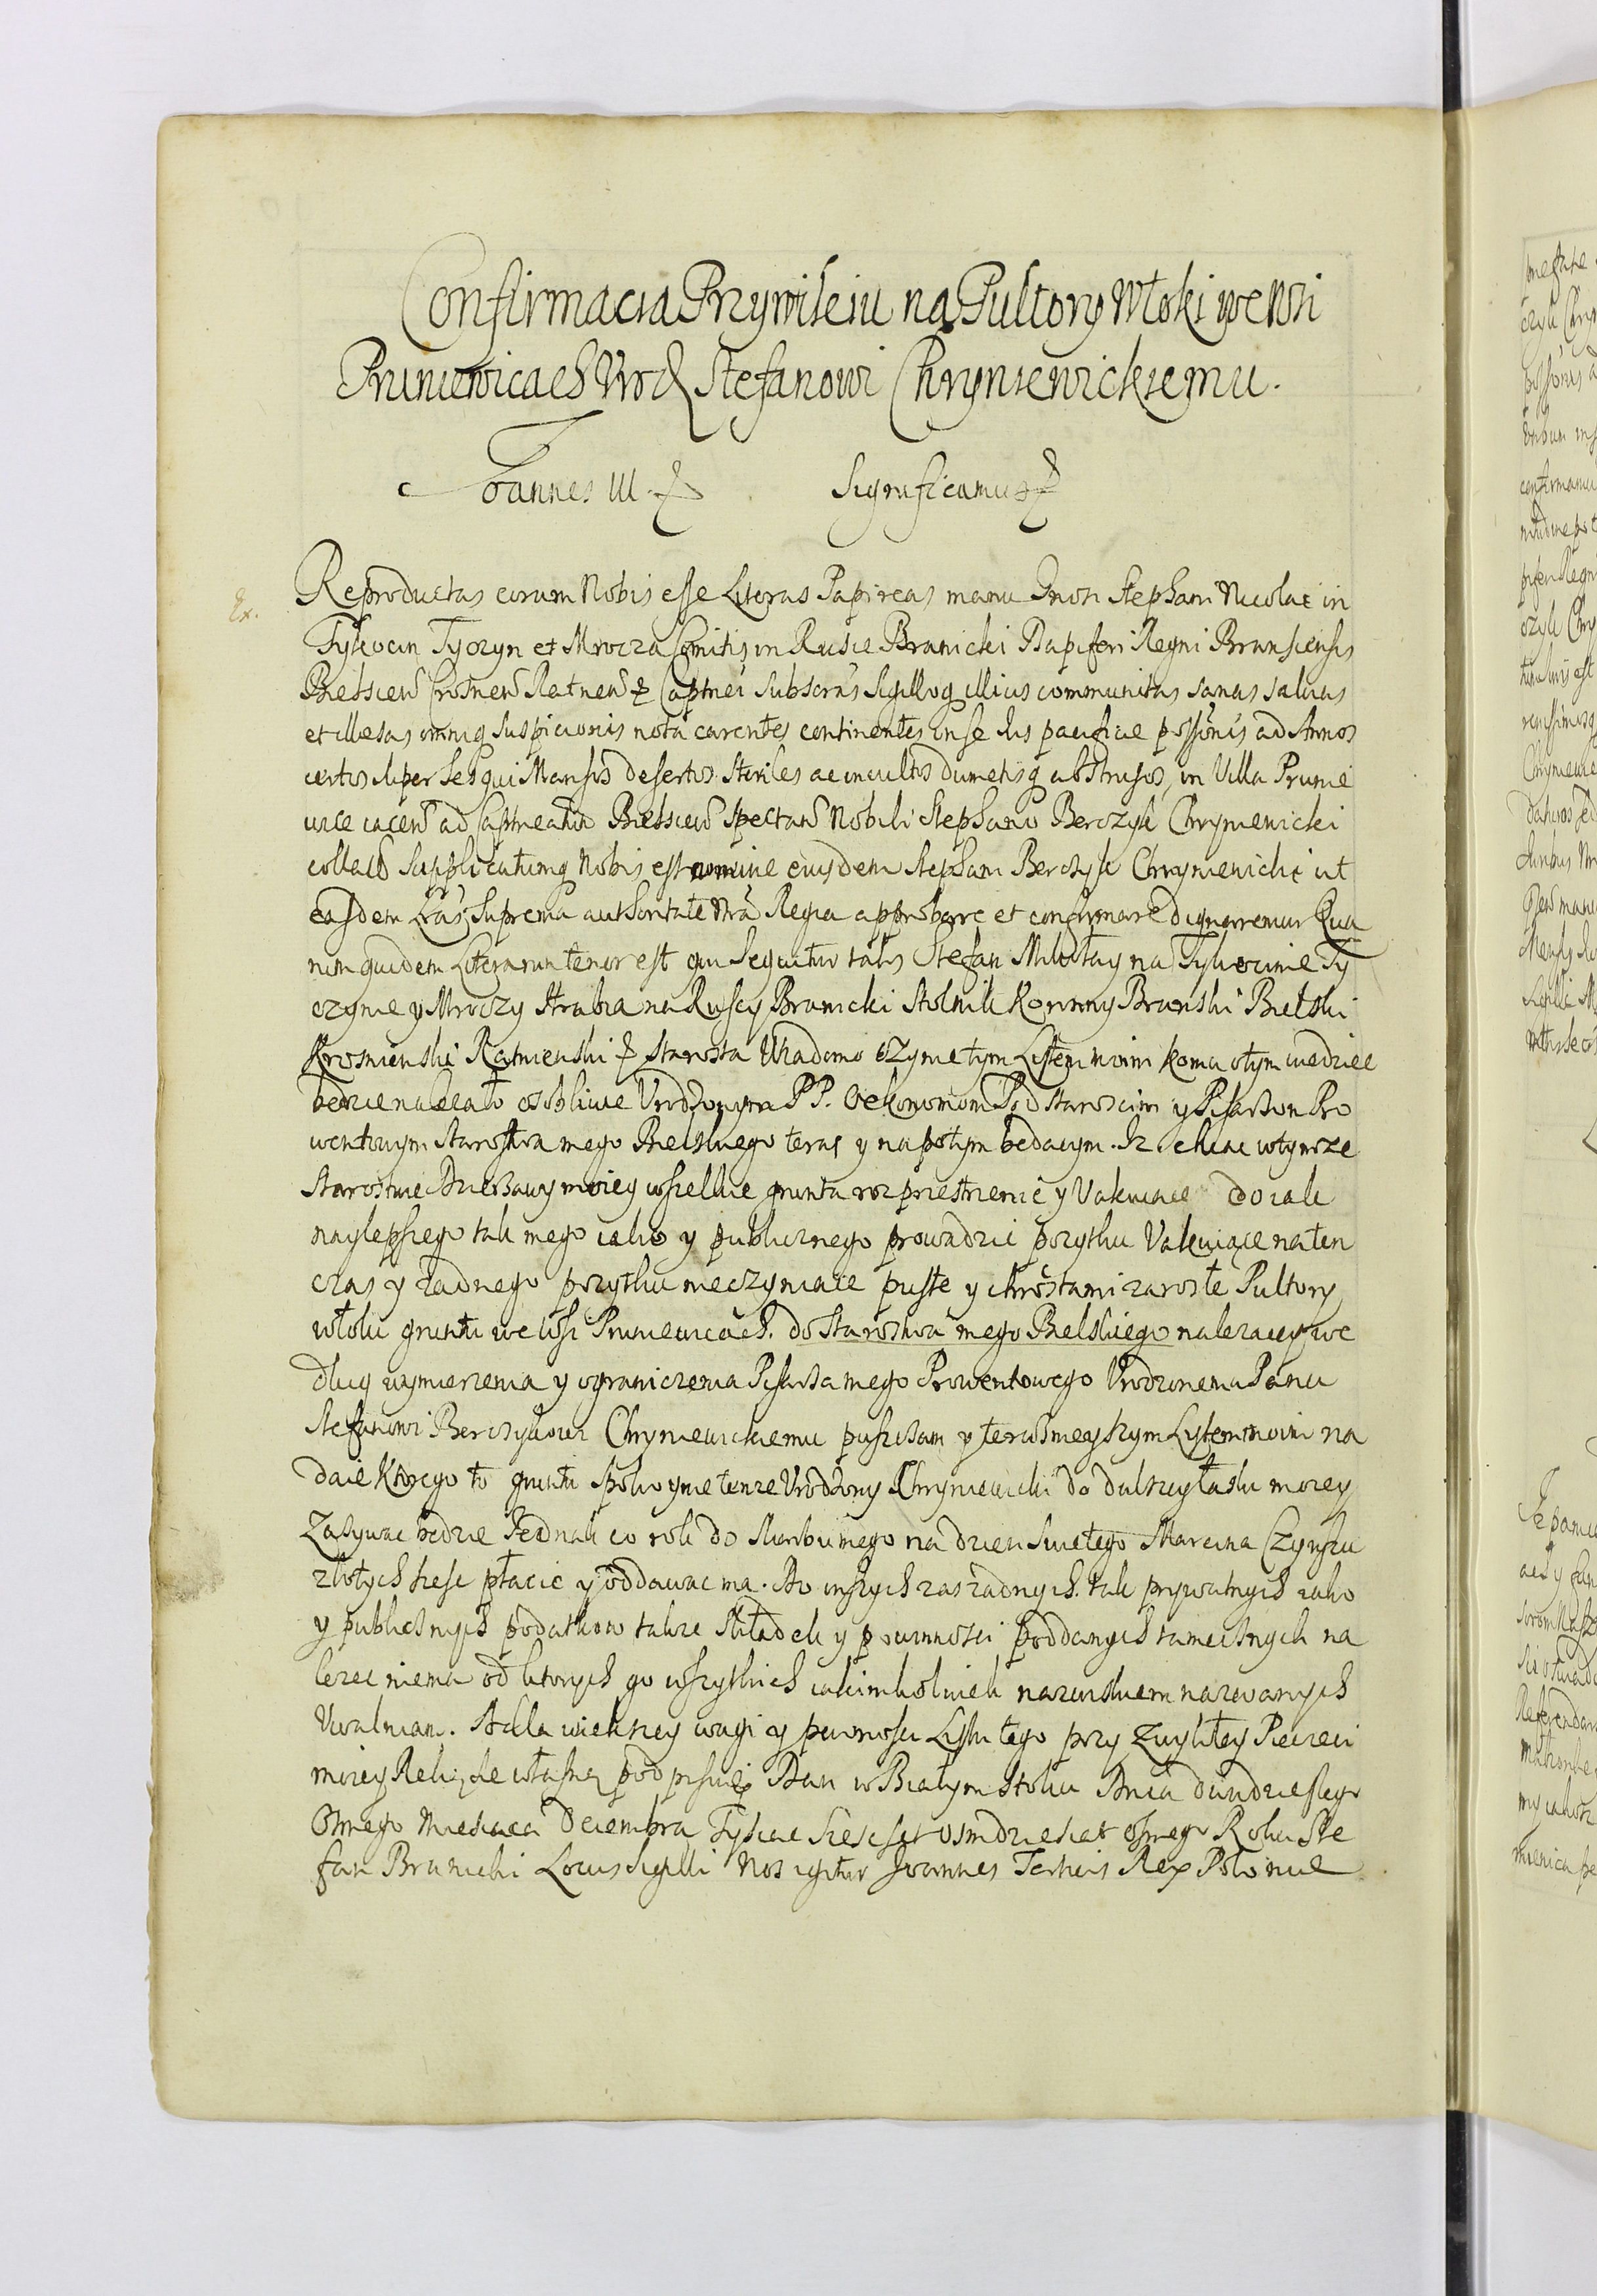 Confirmacia Przywileiu na Pultory Włoki we Wsi
Pruniewicach Urodz Stefanowi Chryniewickiemu.
Ioannes III. &
Significamus &
Ex.
Reproductas coram Nobis esse Literas Papireas manu Gnosi Stephani Nicolai in
Tykocin Tyczyn et Mrocza Comitis in Rusie Branicki Dapiferi Regni Branscensis
Bielscien Crosnen Ratnen & Capitnei Subscras Sigilloq illius communitas sanas salvas
et illesas omniq suspicionis nota carentes continentes in se Ius pacificae possionis ad Annos
certos super Sesqui Mansos desertos steriles ac incultos dumetisq abstrusos, in Villa Prunie
wice iacen ad Captneatum Bielscien spectan Nobili Stephano Berczyk Chryniewicki
collat Supplicatumq Nobis est nomine eiusdem Stephani Berczyk Chryniewicki ut
easdem Lras Suprema authoritate Nra Regia approbare et confirmare dignaremur Qua
rum quidem Literarum tenor est qui sequitur talis Stefan Mikołay na Tykocinie Ty
czynie y Mroczy Hrabia na Ruscy Branicki Stolnik Koronny Branski Bielski
Krosnienski Ratnienski & Starosta Wiadomo czynie tym Listem moim komu o tym wiedziec
bedzie nalezało osobliwie Urodzonym P P. Oekonomom Podstaroscim y Pisarzom Pro
wentowym Starostwa mego Bielskiego teraz y napotym bedacym. Iz chcac w tymze
Starostwie Dzierzawy moiey wszelkie grunta rozprzestrzenic y Vakuiace do iak
naylepszego tak mego iako y publicznego prowadzic pozytku Vakuiące na ten
czas y zadnego pozytku nieczyniace puste y chrostami zarosłe Pultory
włoki gruntu we Wsi Pruniewicach. do Starostwa mego Bielskiego nalezacey we
dług wymierzenia y ograniczenia Pisarza mego Prowentowego Urodzonemu Panu
Stefanowi Berczykowi Chryniewickiemu puszczam y teraznieyszym Listem moim na
daie Ktorego to gruntu spokoynie tenze Urodzony Chryniewicki do dalszey łaski moiey
Zazywac bedzie Iednak co rok do skarbu mego na dzien Swietego Marcina Czynszu
złotych szesc płacic y oddawac ma. Do inszych zas zadnych tak prywatnych iako
y publicznych podatkow takze składek y powinnosci poddanych tamecznych na
lezec niema od ktorych go wszytkich iakimkolwiek nazwiskiem nazwanych
Uwalniam. A dla wiekszey wagi y pewnosci Listu tego przy zwykłey Pieczeci
moiey Reką sie własną podpisuię Dan w Białymstoku Dnia dwudziestego
Osmego Miesiaca Decembra Tysiac Szescset osmdziesiat osmego Roku Ste
fan Branicki Locus Sigilli Nos igitur Joannes Tertius Rex Poloniae